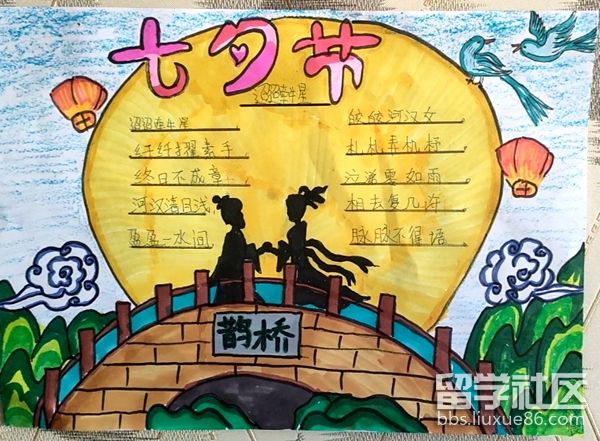 七夕节
迢迢牵牛星
迢迢牵牛星
皎皎河汉女,
纤纤擢素手
札札弄机杼,
终日不成章,
泣涕零如雨,
河汉清且浅,
相去复几许
盈盈一水间
脉脉不得语
鹊桥
留学社区
bbs.liuxue86.com